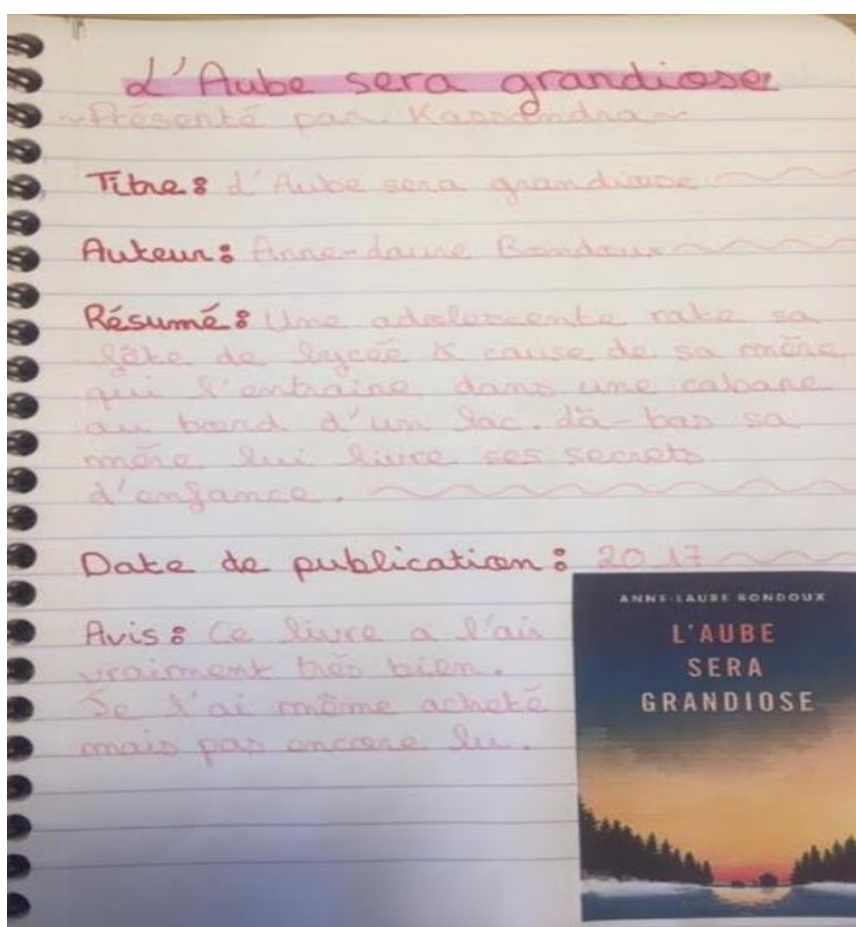 L'Aube sera grandiose
~Présenté par Kassandra~
Titre: L'Aube sera grandiose
Auteur: Anne-Laure Bondoux
Résumé: Une adolescente rate sa
fête de lycée à cause de sa mère
qui l'entraine dans une cabane
au bord d'un lac. Là-bas sa
mère lui livre ses secrets
d'enfance.
Date de publication: 2017
Avis: Ce livre a l'air
vraiment très bien.
Je l'ai même acheté
mais pas encore lu.
ANNE-LAURE BONDOUX
L'AUBE
SERA
GRANDIOSE